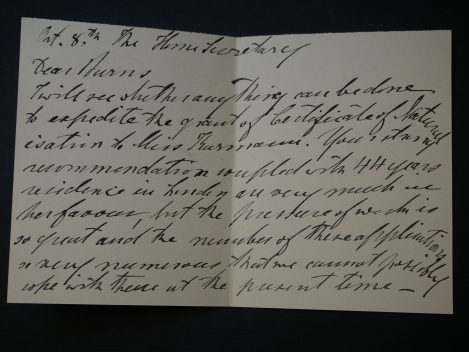 Oct. 8.th The Home Secretary
Dear Burns
I will see whether anything can be done
to expedite the grant of Certificate of Natural
isation to Miss Furmann. Your
recommendation coupled with 44 years
residence in London are very much in
her favour, but the pressure of work is
so great and the number of these applications
so very numerous that we cannot possibly
cope with them at the present time —